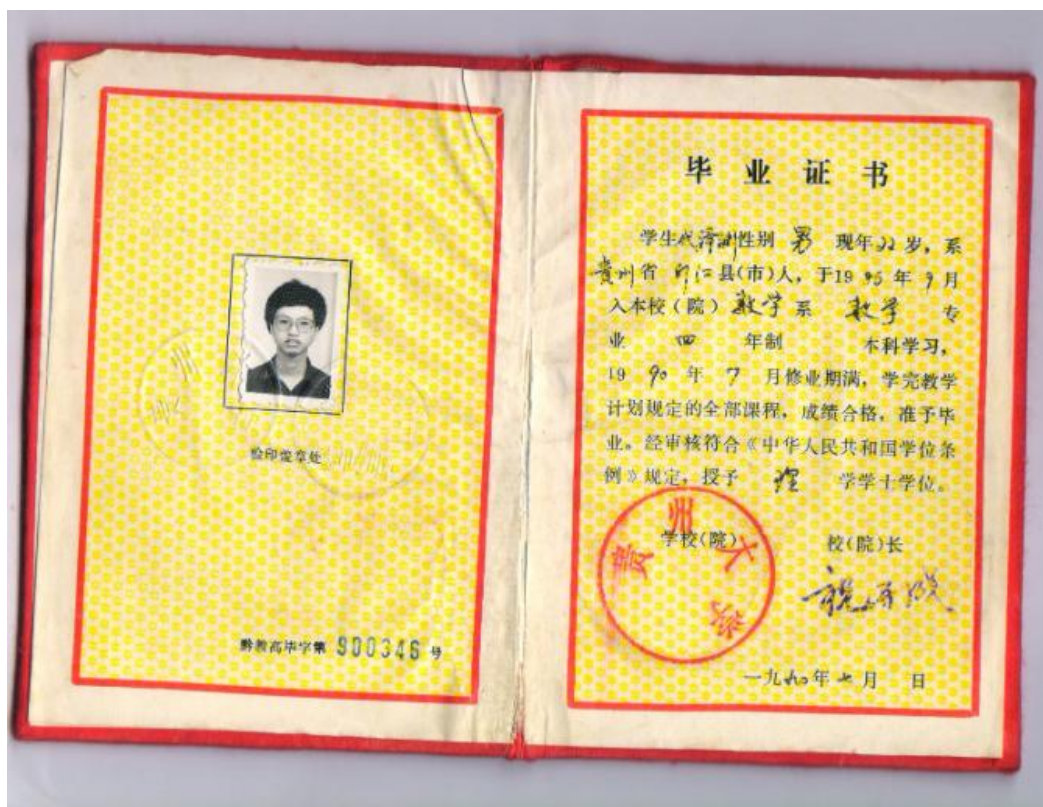 验印盖章处
黔教高毕字第 900346 号
毕业证书
学生 性别 男 现年22岁，系
贵州省 印江县(市)人，于19 年 9 月
入本校(院) 数学 系 数学 专
业 四 年制 本科学习，
19 90 年 7 月修业期满，学完教学
计划规定的全部课程，成绩合格，准予毕
业。经审核符合《中华人民共和国学位条
例》规定，授予 理 学学士学位。
学校(院) 校(院)长
贵州大学
一九九〇年七月 日